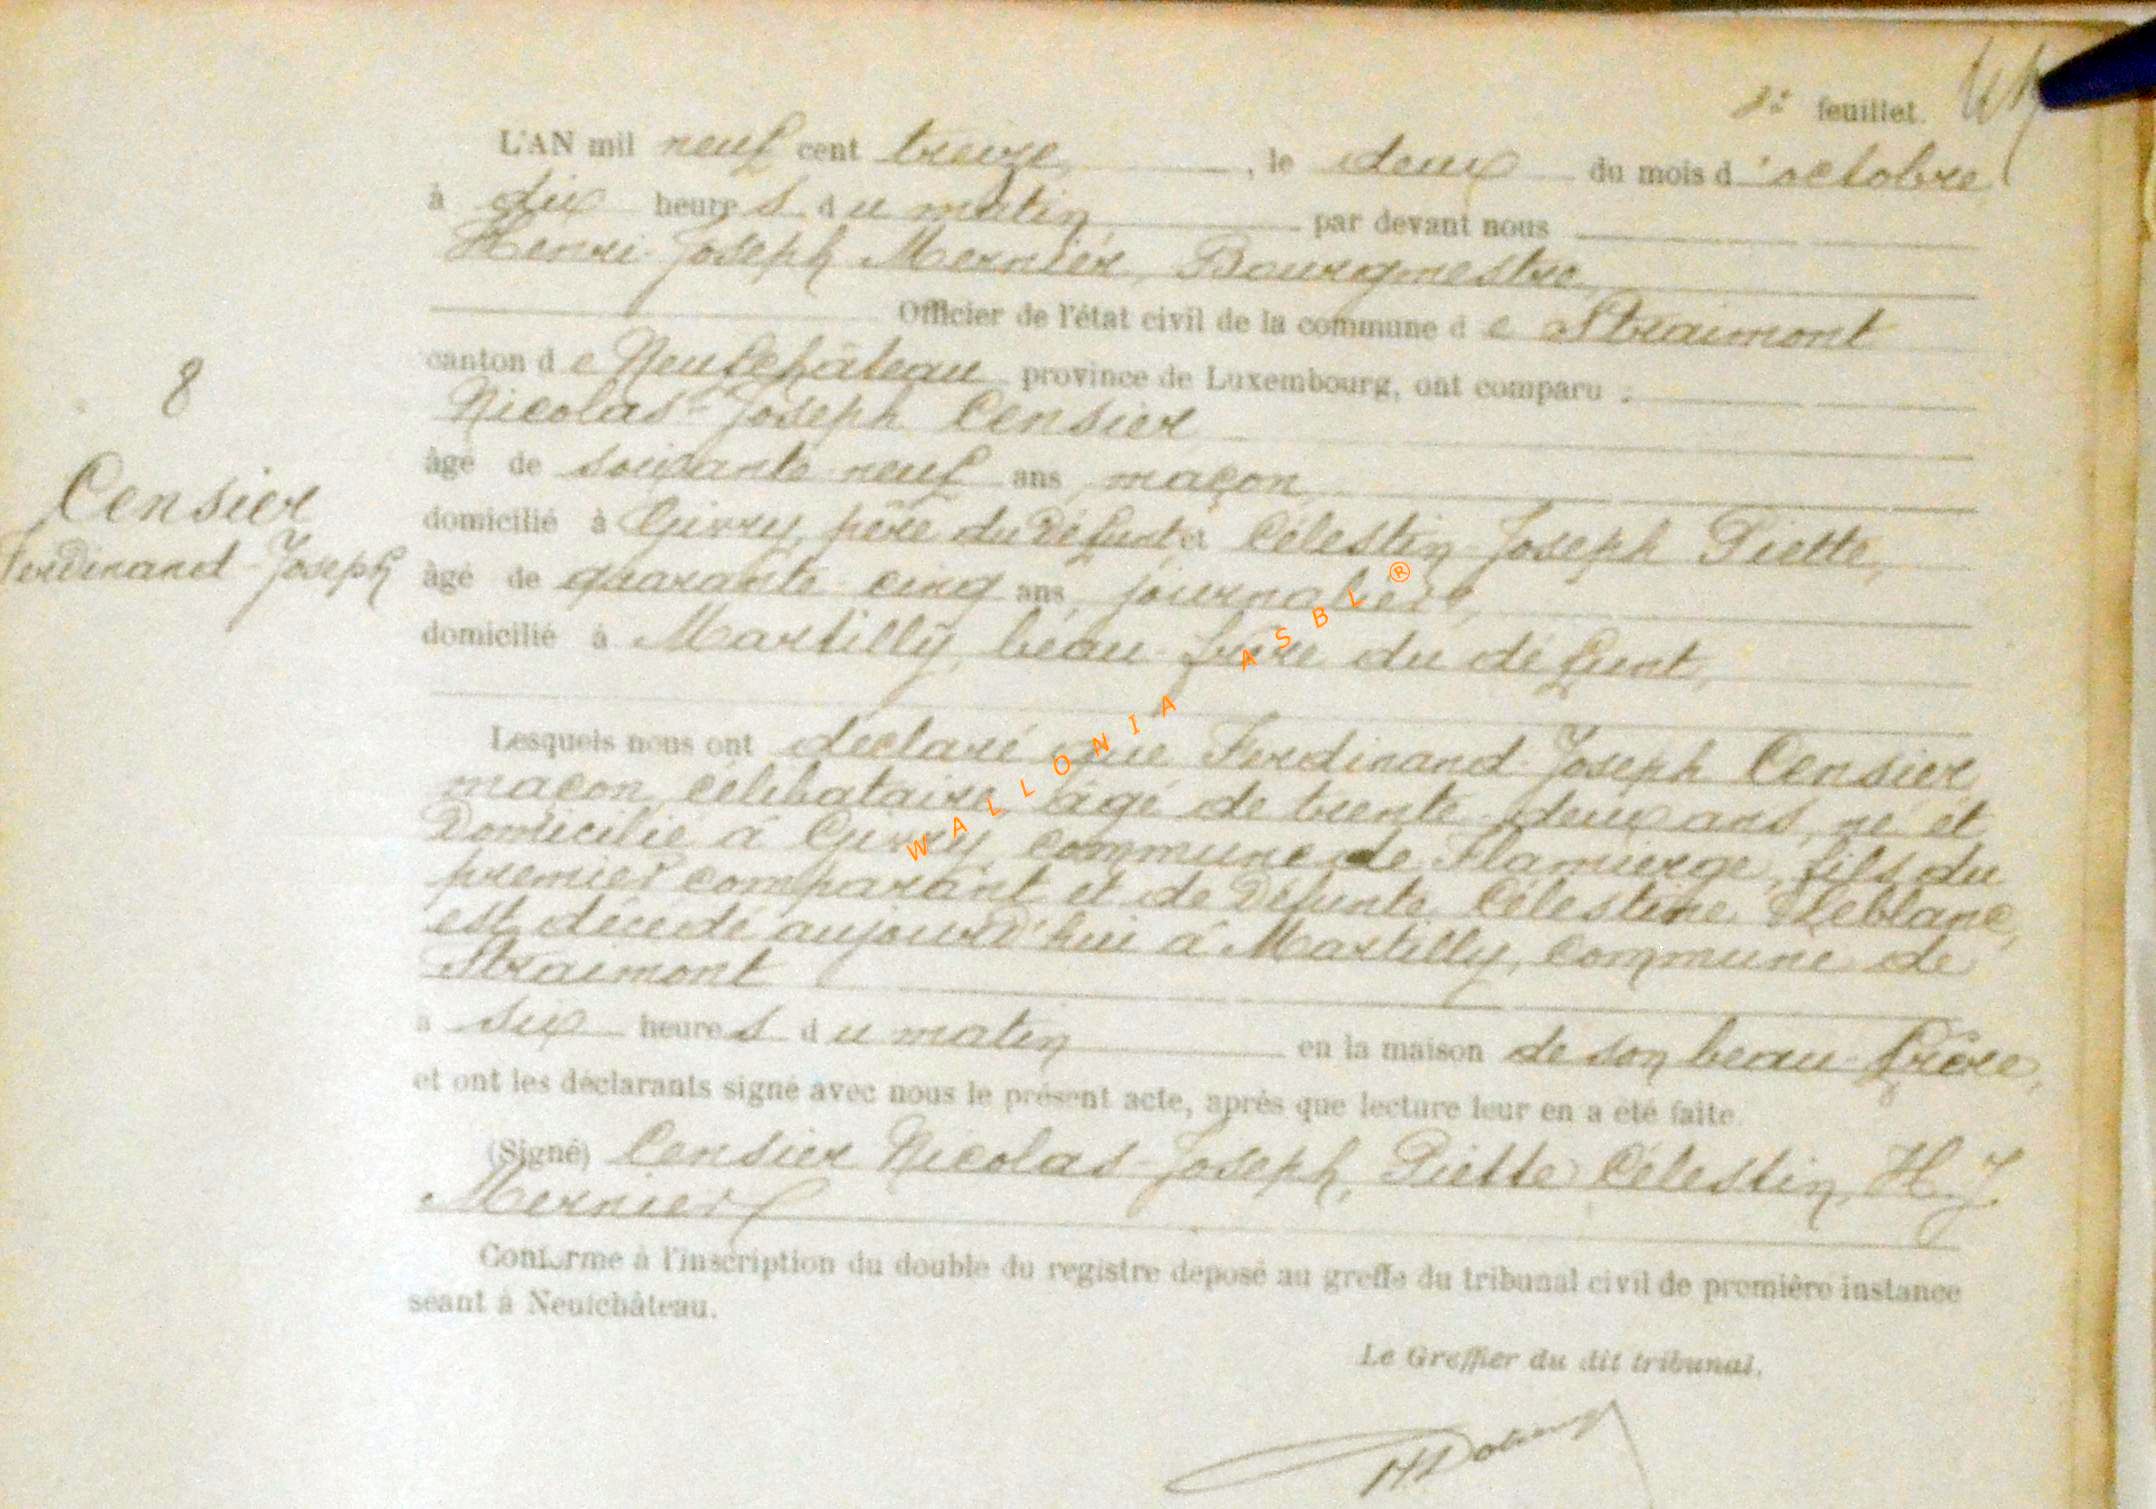 feuillet.
L'AN mil neuf cent treize, le deux du mois d'octobre
à dix heures du matin par devant nous
Henri-Joseph Mernier, Bourgmestre,
Officier de l'état civil de la commune de Straimont
canton de Neufchâteau province de Luxembourg, ont comparu :
8
Nicolas-Joseph Censier
âgé de soixante-neuf ans, maçon,
Censier
domicilié à Givry, père du défunt et Célestin-Joseph Piette,
Ferdinand-Joseph
âgé de quarante-cinq ans, journalier,
domicilié à Martilly, beau-frère du défunt,
Lesquels nous ont déclaré que Ferdinand-Joseph Censier
maçon, célibataire, âgé de trente-deux ans, né et
domicilié à Givry, commune de Flamierge, fils du
premier comparant et de défunte Célestine Leblanc,
est décédé aujourd'hui à Martilly, commune de
Straimont
à six heures du matin en la maison de son beau-frère,
et ont les déclarants signé avec nous le présent acte, après que lecture leur en a été faite.
(Signé) Censier Nicolas-Joseph, Piette Célestin, H. J.
Mernier
Conforme à l'inscription du double du registre déposé au greffe du tribunal civil de première instance
séant à Neufchâteau.
Le Greffier du dit tribunal,
WALLONIA ASBL ®